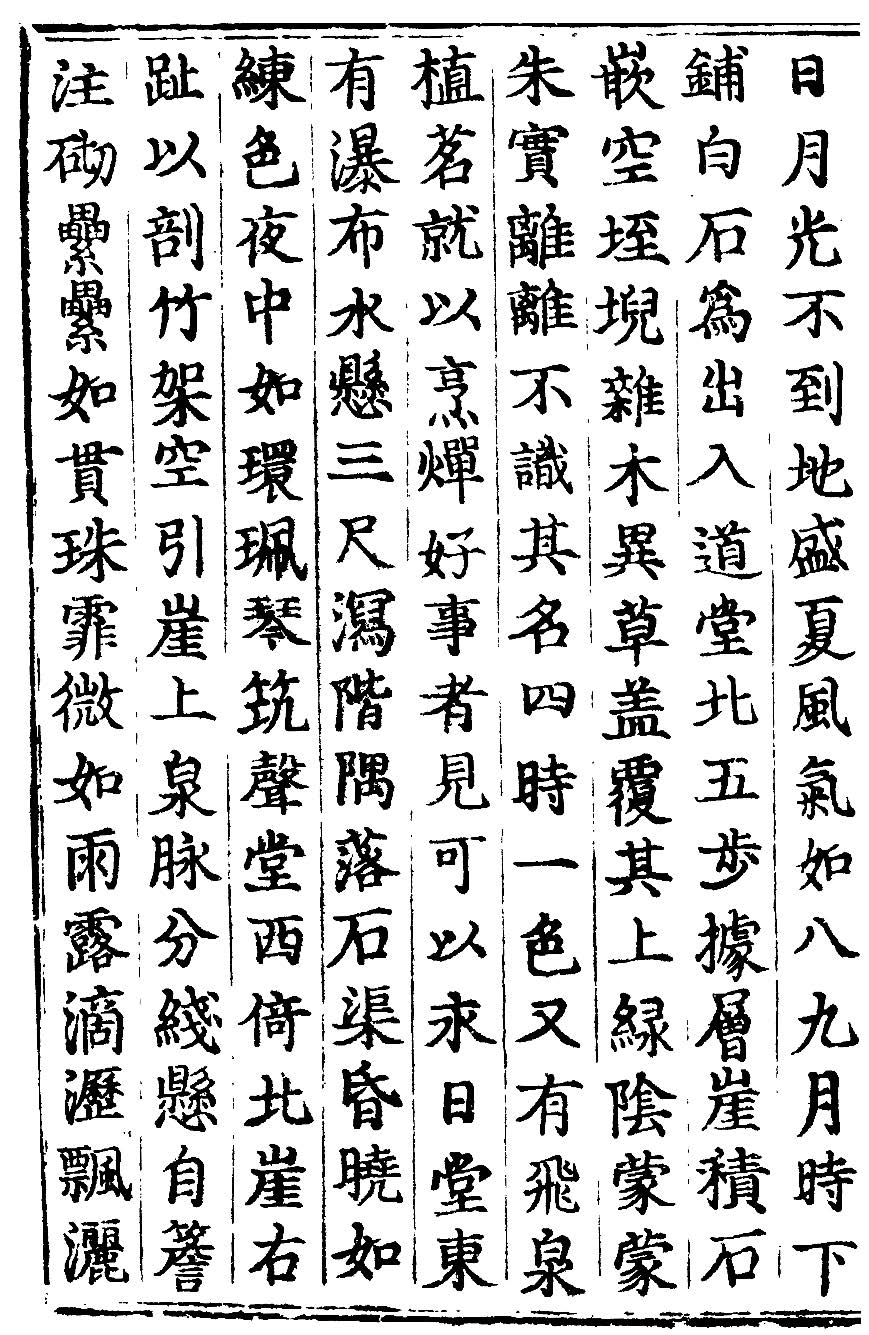 日月光不到地盛夏風氣如八九月時下
鋪白石爲出入道堂北五歩據層崖積石
嵌空垤堄雜木異草盖覆其上緑陰蒙蒙
朱實離離不識其名四時一色又有飛泉
植茗就以烹燀好事者見可以永日堂東
有瀑布水懸三尺瀉階隅落石渠昏曉如
練色夜中如環珮琴筑聲堂西倚北崖右
趾以剖竹架空引崖上泉脉分綫懸自簷
注砌纍纍如貫珠霏微如雨露滴瀝飄灑